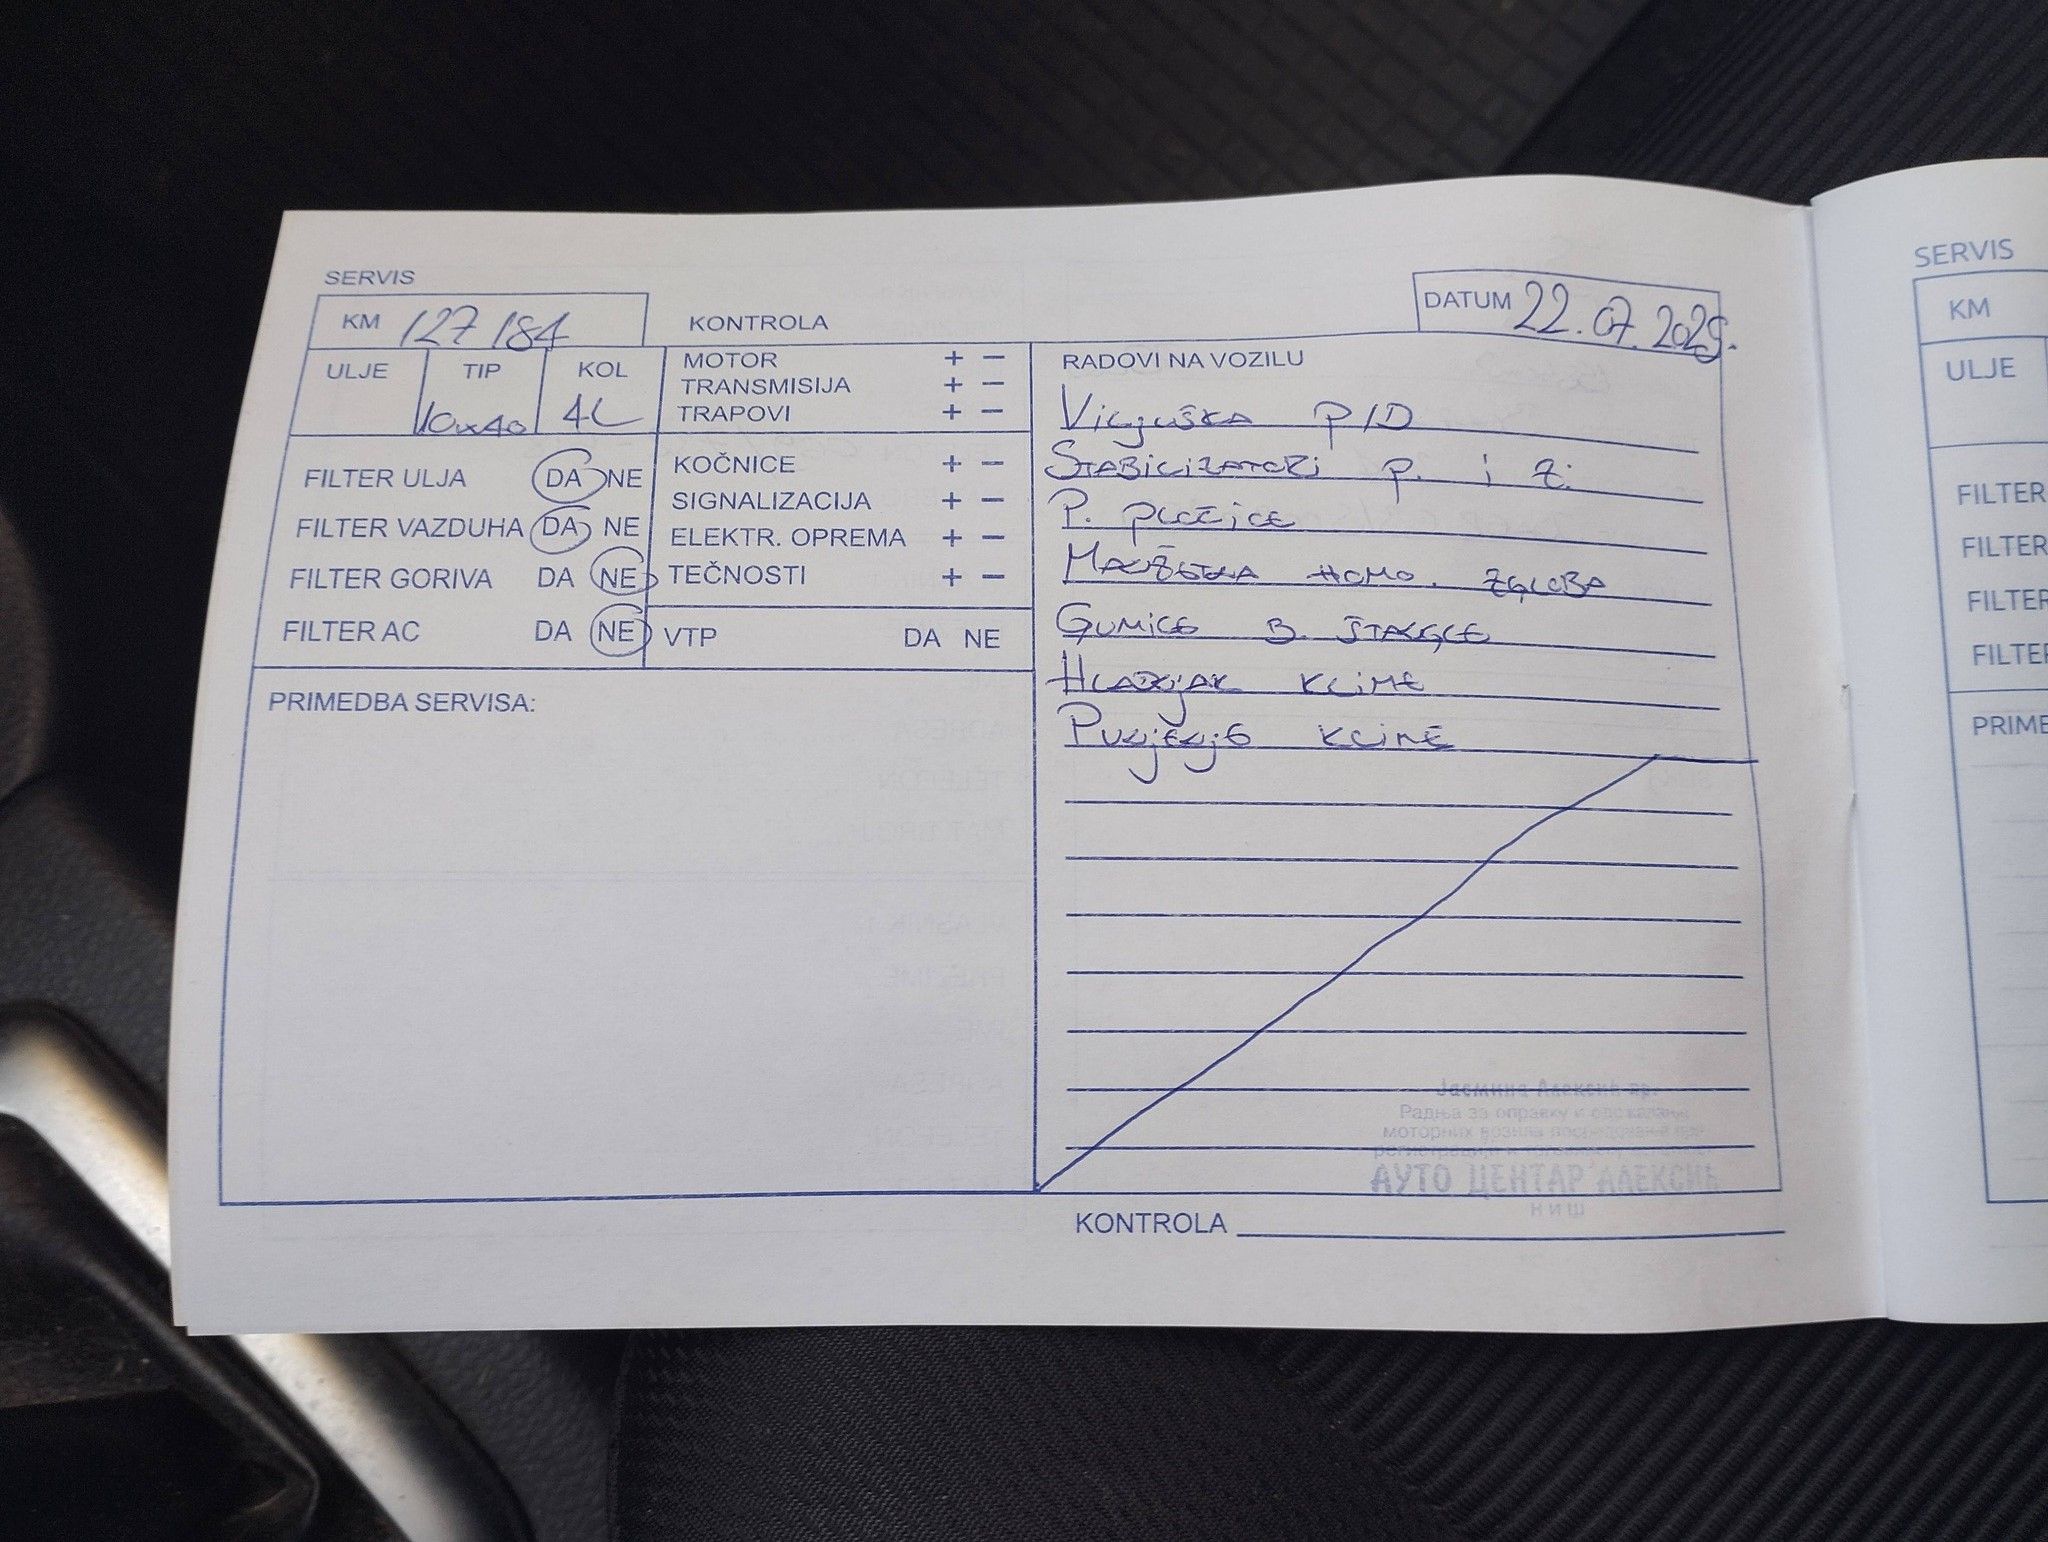 SERVIS
KM 127 184
KONTROLA
DATUM 22.07.2025.
ULJE TIP KOL
10w40 4L
MOTOR + −
TRANSMISIJA + −
TRAPOVI + −
FILTER ULJA DA NE
FILTER VAZDUHA DA NE
FILTER GORIVA DA NE
FILTER AC DA NE
KOČNICE + −
SIGNALIZACIJA + −
ELEKTR. OPREMA + −
TEČNOSTI + −
VTP DA NE
PRIMEDBA SERVISA:
RADOVI NA VOZILU
Viljuška P/D
Stabilizatori p. i z.
P. pločice
Manžetna homo. zgloba
Gumice B. štangle
Hladnjak klime
Punjenje klime
Јасмина Алексић пр.
Радња за оправку и одржавање
моторних возила
АУТО ЦЕНТАР АЛЕКСИЋ
НИШ
KONTROLA
SERVIS
KM
ULJE
FILTER
FILTER
FILTER
FILTER